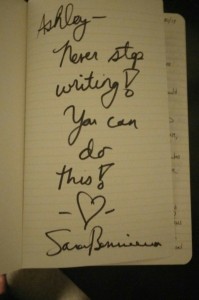 Ashley—
Never stop
writing!
You can
do
this!
-♡-
Sara